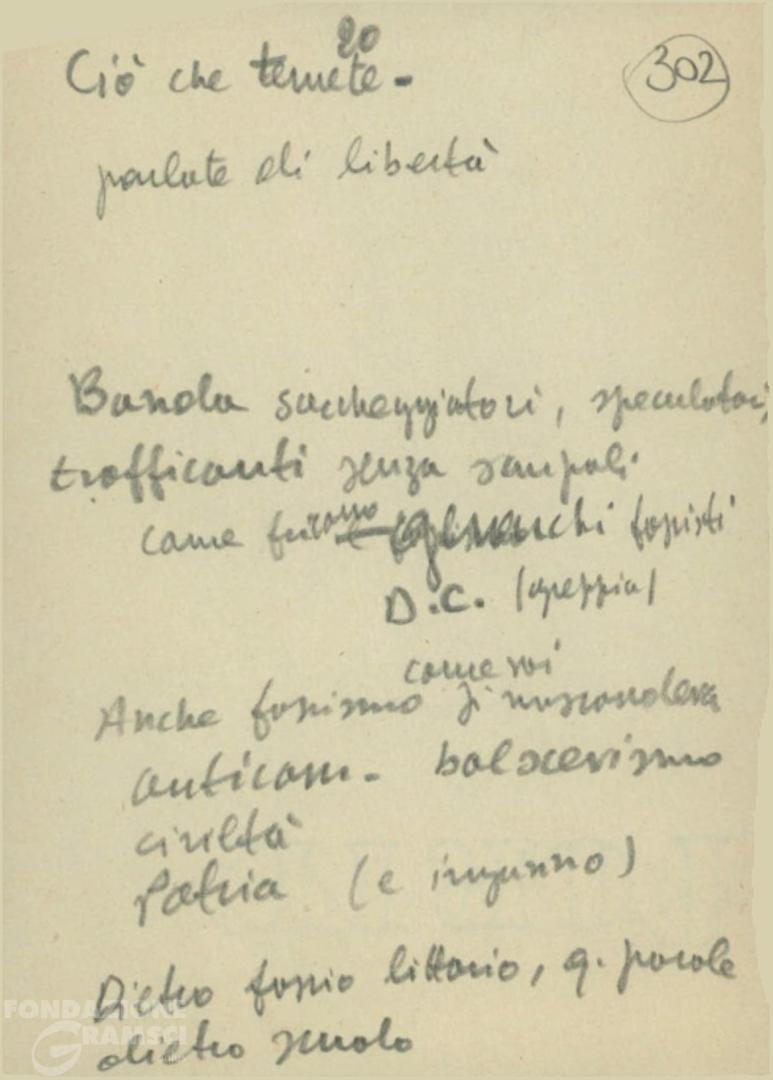 20
302
Ciò che temete -
parlate di libertà
Banda saccheggiatori, speculatori,
trafficanti senza scrupoli
come furono gerarchi fascisti
D.C. (greppia)
come voi
Anche fascismo si nascondeva
anticom. - bolscevismo
civiltà
Patria (e inganno)
Dietro fascio littorio, q. parole
dietro scudo
FONDAZIONE
GRAMSCI